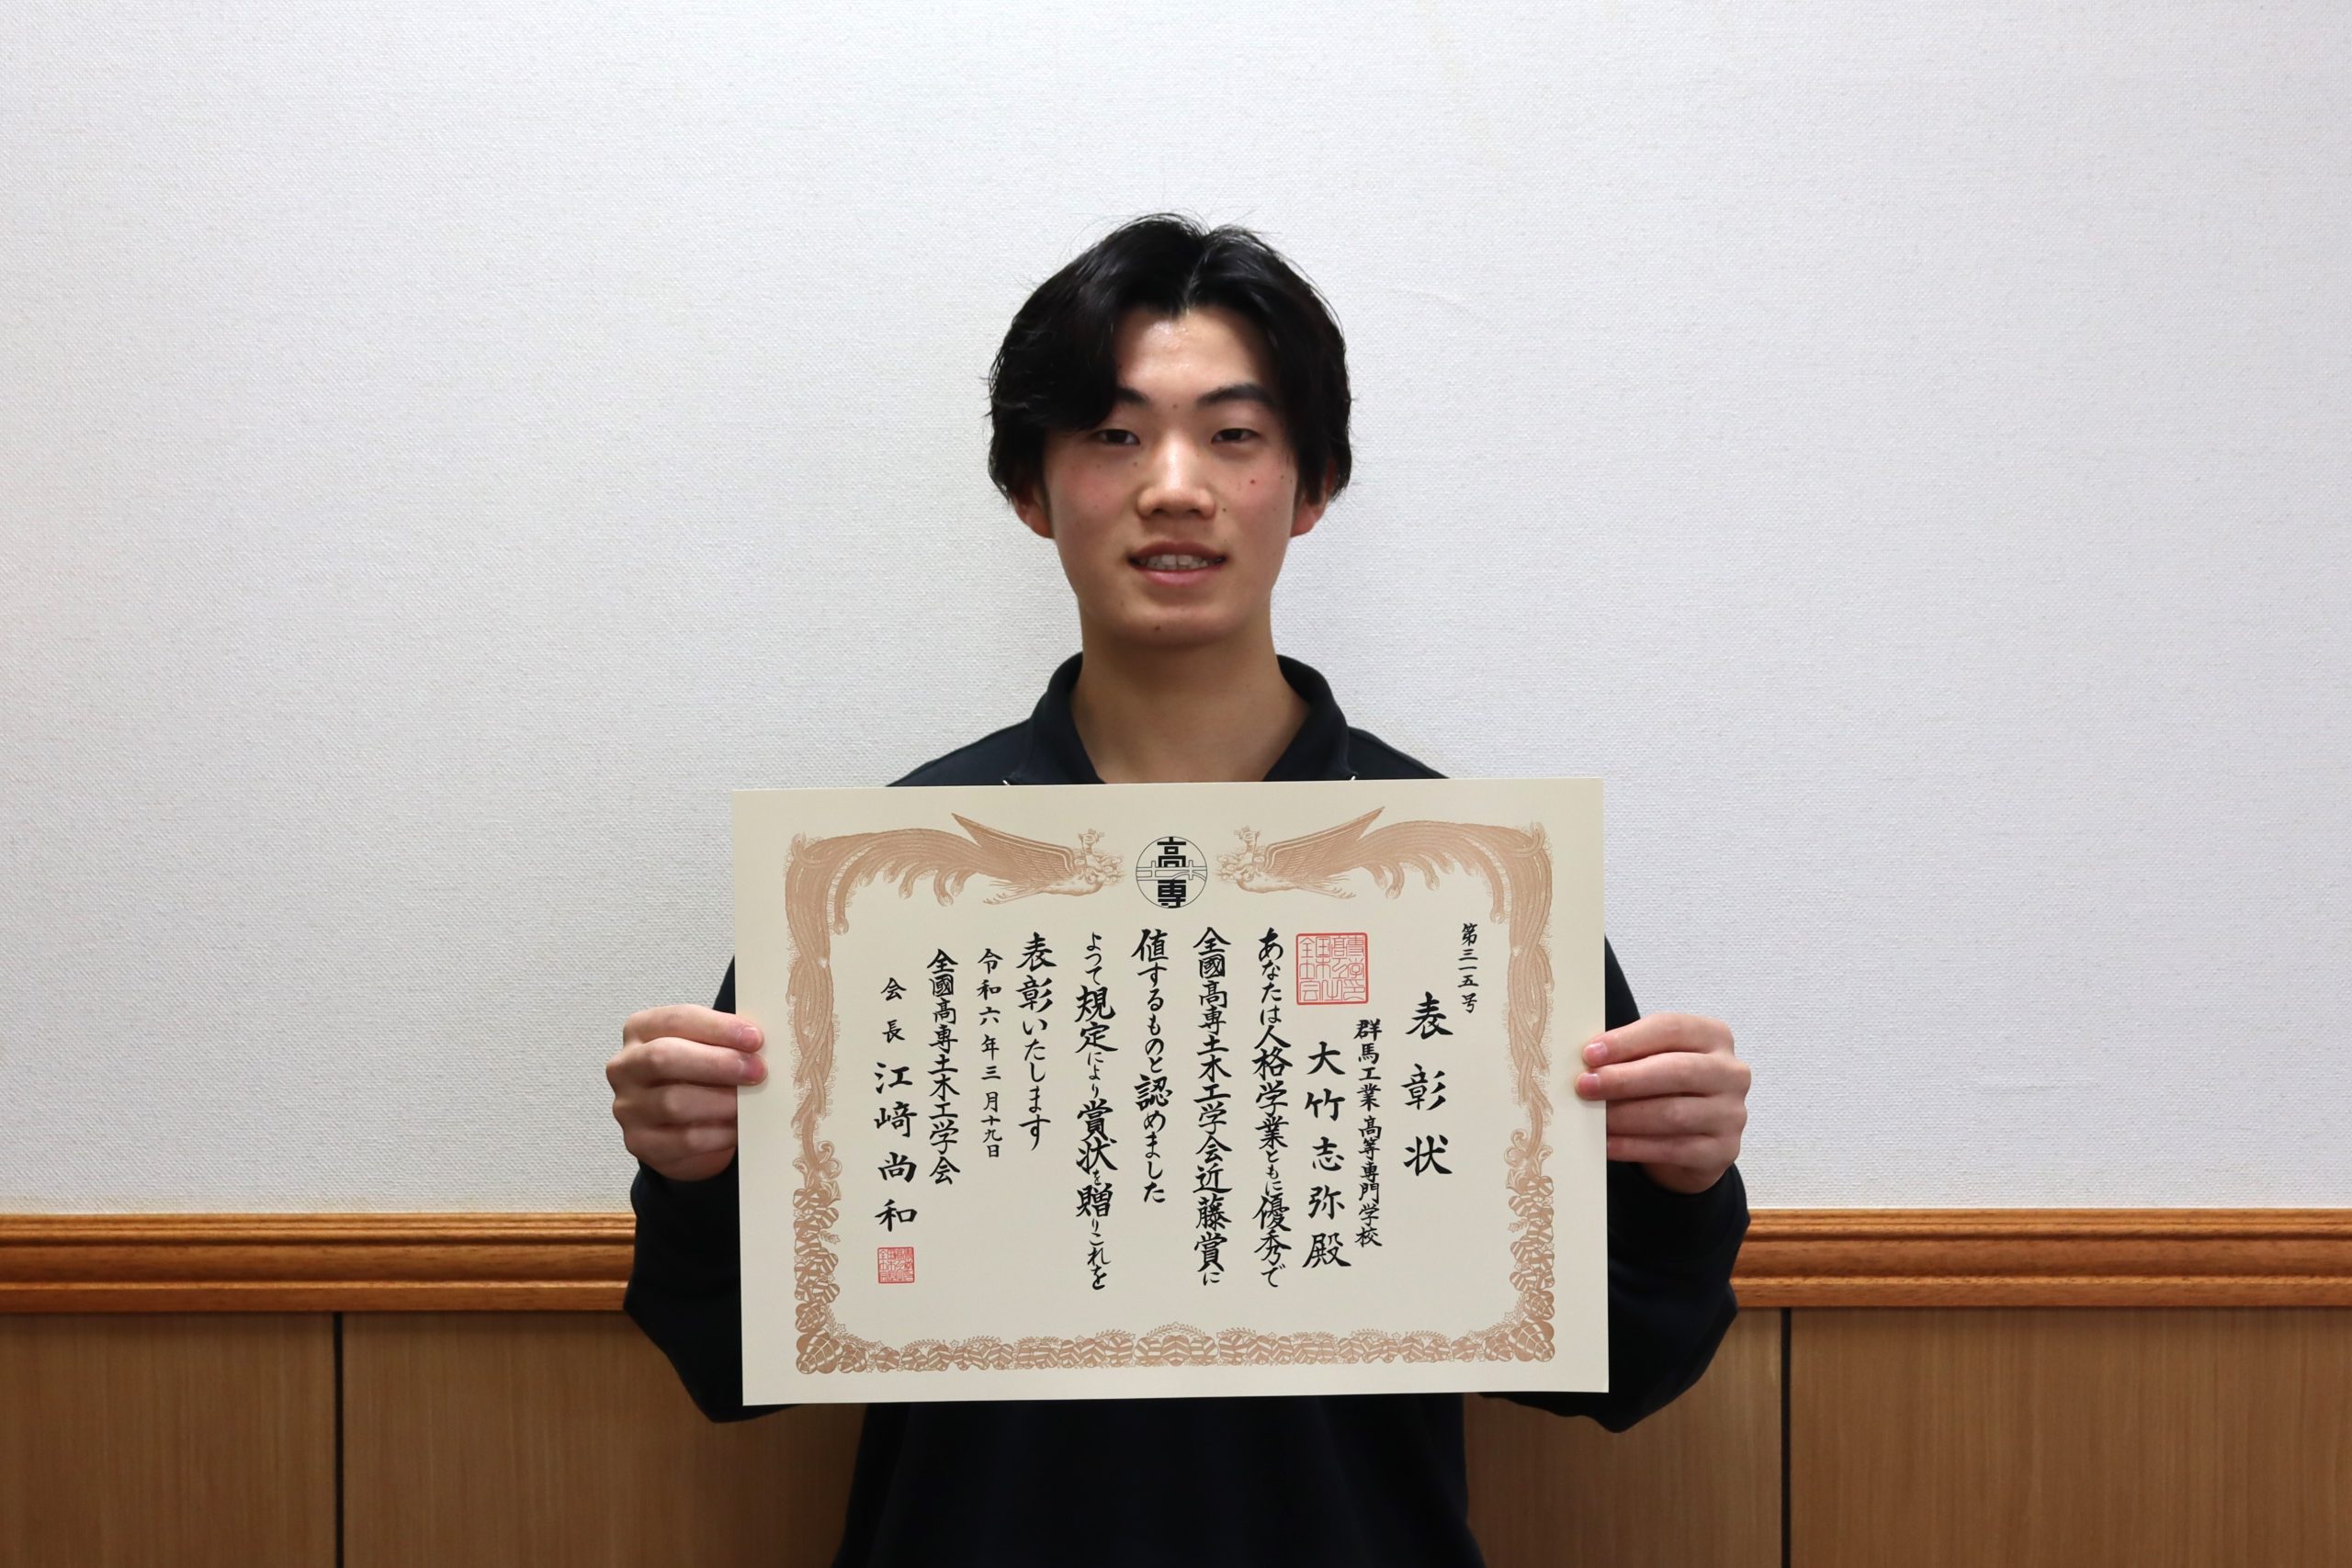 高専
土木
第三一五号
表彰状
群馬工業高等専門学校
大竹志弥殿
あなたは人格学業ともに優秀で
全國高専土木工学会近藤賞に
値するものと認めました
よつて規定により賞状を贈りこれを
表彰いたします
令和六年三月十九日
全國高専土木工学会
会長 江﨑尚和